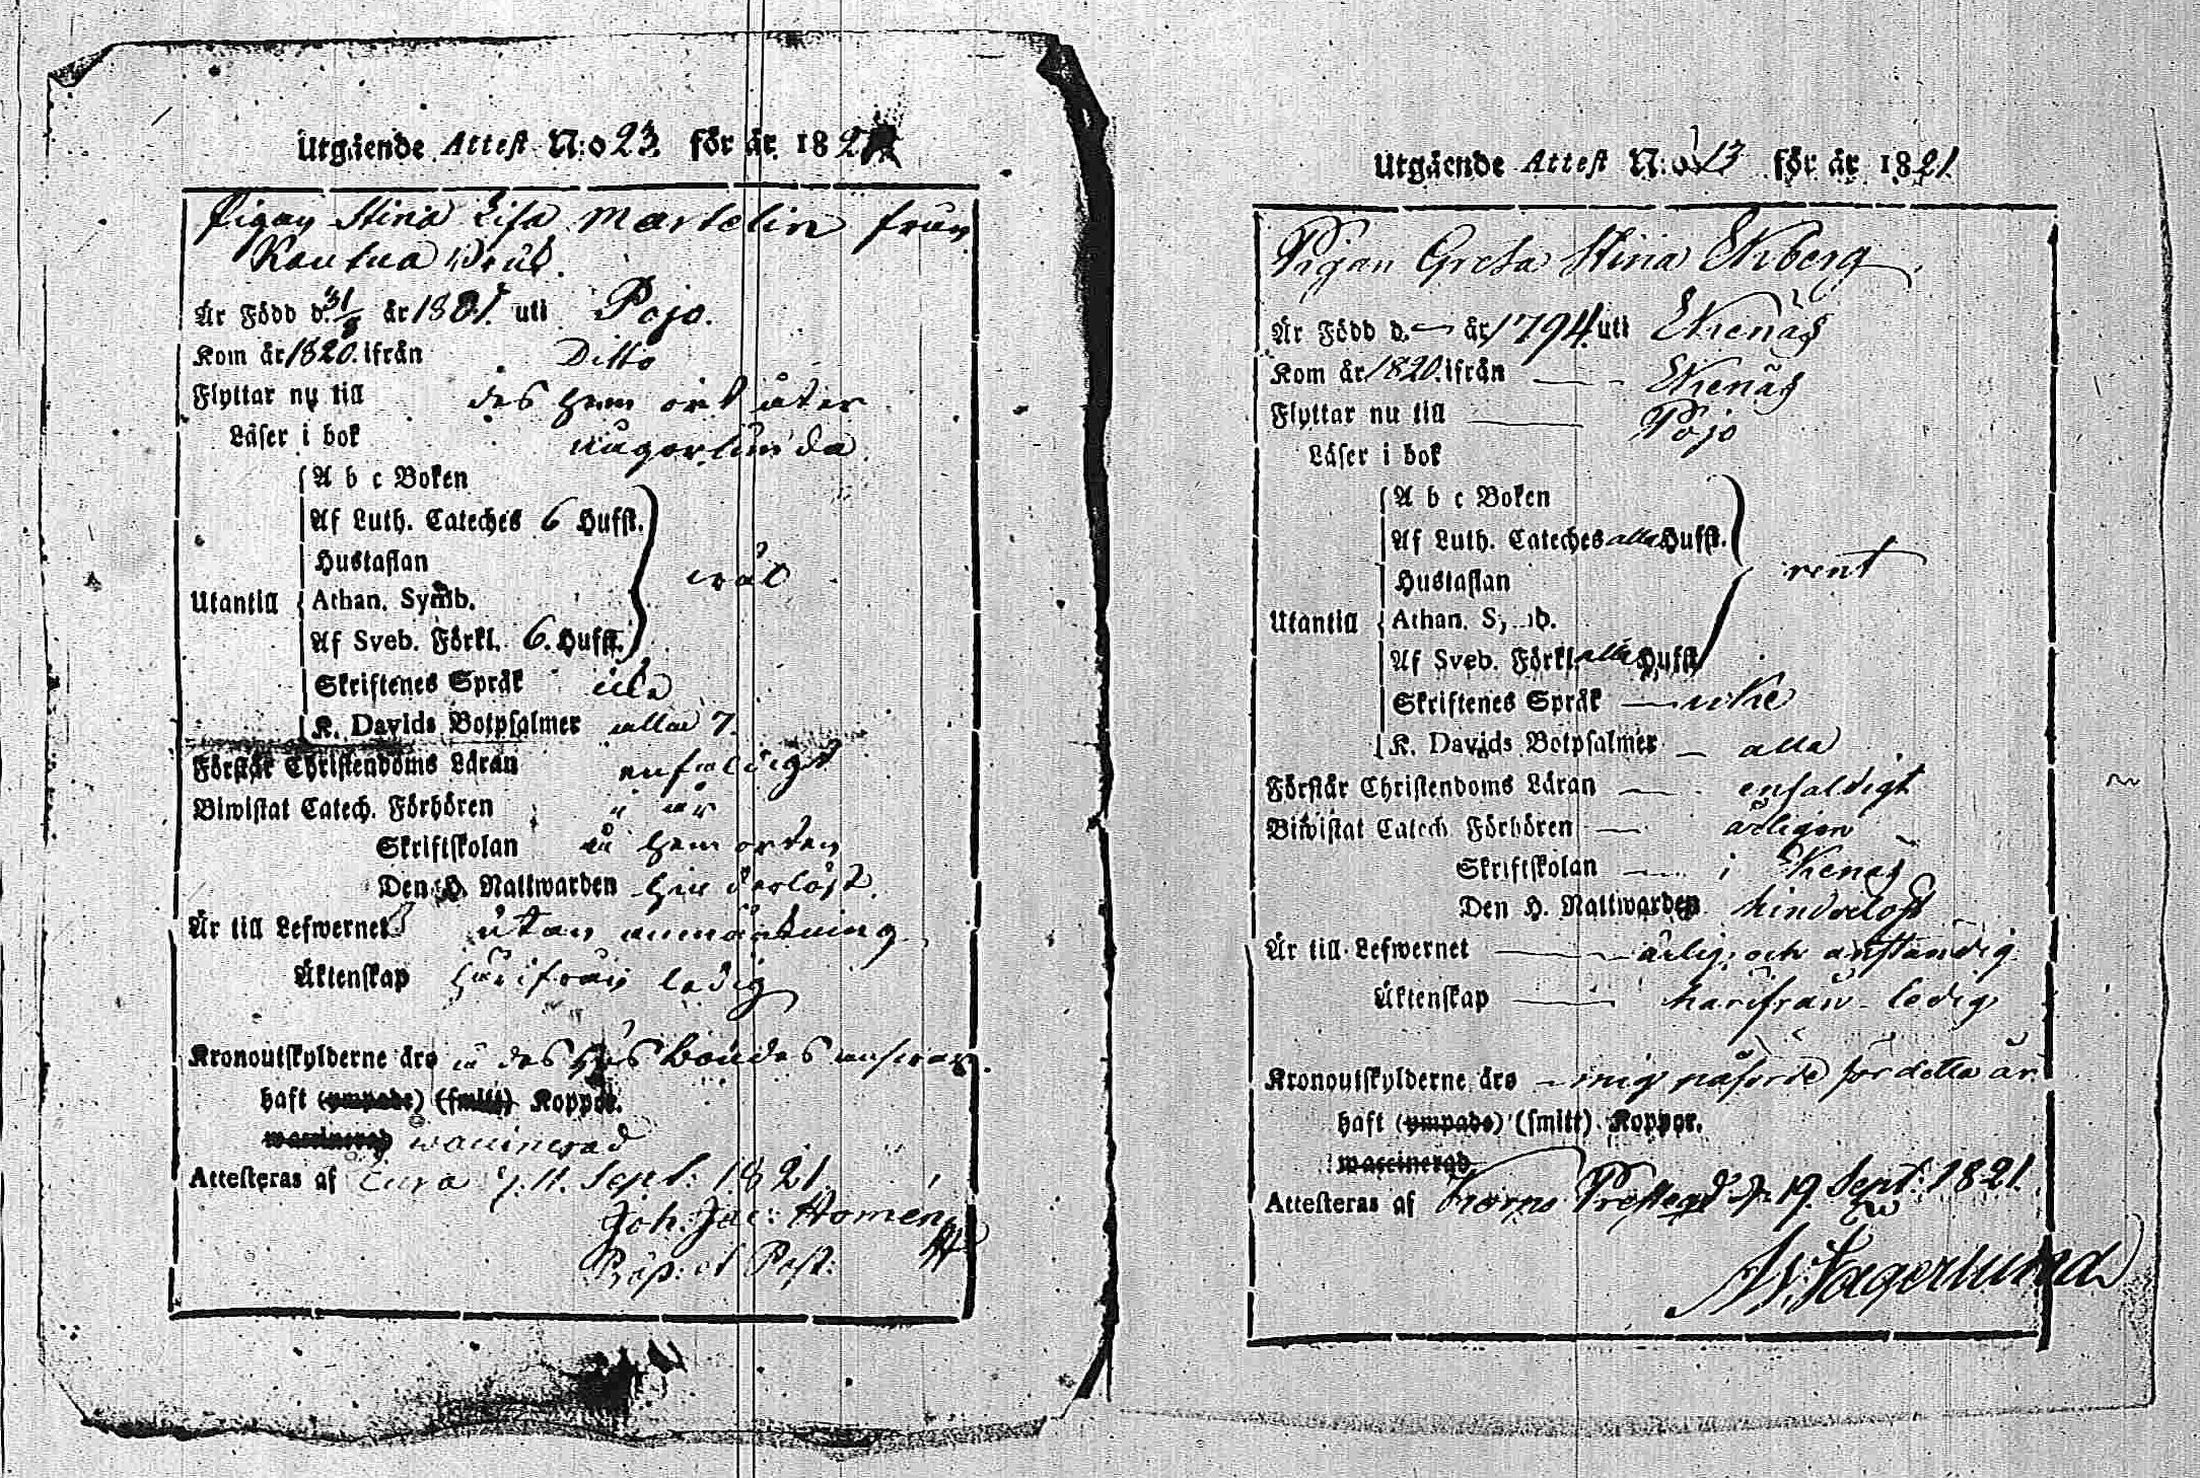 Utgående Attest N:o 23. för år 1821
Pigan Stina Lisa Martelin från
Kautua Bruk.
Är Född d. 31/8 år 1801. uti Pojo.
Kom år 1820. ifrån Ditto
Flyttar nu till des hem ort åter
Läser i bok någorlunda
A b c Boken
Af Luth. Cateches 6 Hufst.
Hustaflan
Utantill Athan. Symb.
Af Sveb. Förkl. 6. Hufst.
Skriftenes Språk
K. Davids Botpsalmer alla 7.
Förstår Christendoms Läran enfaldigt
Biwistat Catech. Förhören i år
Skriftskolan i hem orten
Den H. Nattwarden hinderlöst
Är till Lefwernet utan anmärkning
Äktenskap härifrån ledig
Kronoutskylderne äro i des Husbondes ansvar
haft (ympade) (smitt) Koppor.
waccinerad waccinerad
Attesteras af Eura d. 11. Sept. 1821.
Joh. Jac: Homén
Præp: et Past:
Utgående Attest N:o 13 för år 1821.
Pigan Greta Stina Ekberg
Är Född d. — år 1794. uti Ekenäs
Kom år 1820. ifrån — Ekenäs
Flyttar nu till — Pojo
Läser i bok
A b c Boken
Af Luth. Cateches alla Hufst.
Hustaflan rent
Utantill Athan. Symb.
Af Sveb. Förkl. alla Hufst.
Skriftenes Språk — icke
K. Davids Botpsalmer — alla
Förstår Christendoms Läran — enfaldigt
Biwistat Catech. Förhören — årligen
Skriftskolan — i Ekenäs
Den H. Nattwarden hinderlöst
Är till Lefwernet — ärlig och anständig
Äktenskap — härifrån ledig
Kronoutskylderne äro — mig påförde för detta år
haft (ympade) (smitt) Koppor.
waccinerad
Attesteras af Prostegd d. 19. Sept: 1821.